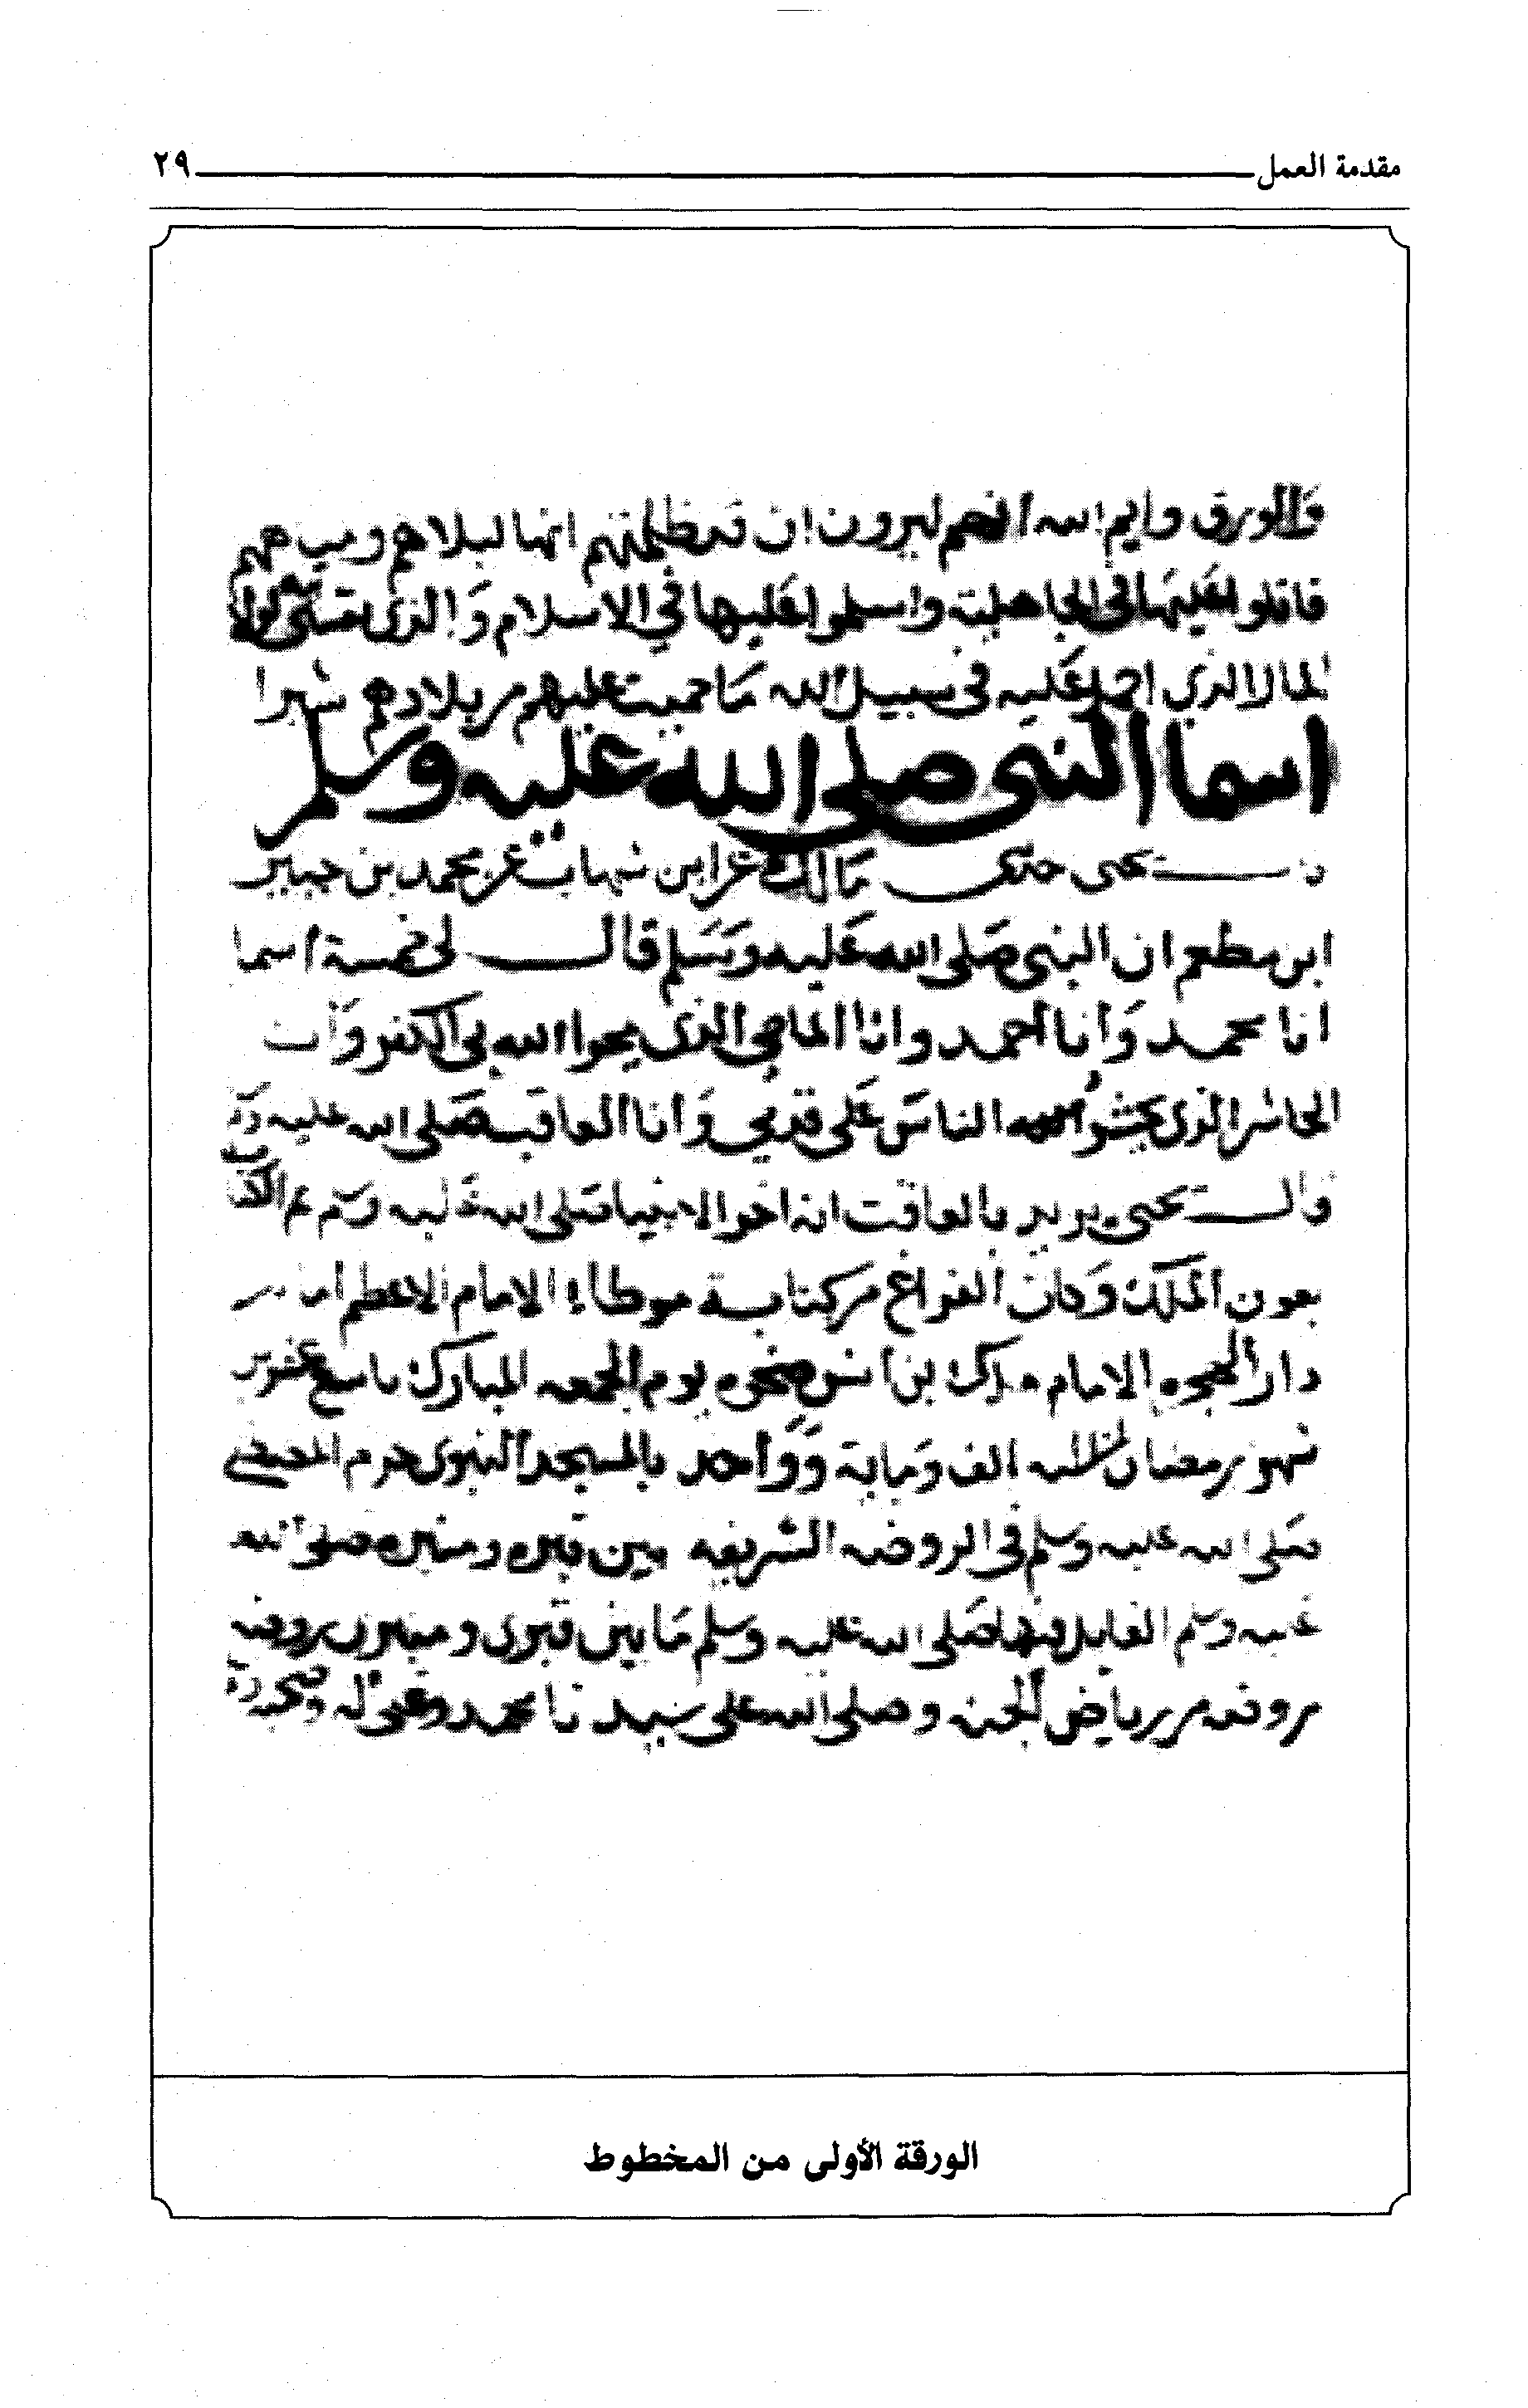 مقدمة العمل ٢٩
والورق وايم الله انهم ليرون ان قد ظلمتهم انها لبلادهم ومياههم
قاتلوا عليها في الجاهلية واسلموا عليها في الاسلام والذي نفسي لولا
المال الذي احمل عليه في سبيل الله ما حميت عليهم من بلادهم شبرا
اسما النبي صلى الله عليه وسلم
يحيى عن مالك عن ابن شهاب عن محمد بن جبير
ابن مطعم ان النبي صلى الله عليه وسلم قال لي خمسة اسما
انا محمد وانا احمد وانا الماحي الذي يمحوا الله بي الكفر وانا
الحاشر الذي يحشر الله الناس على قدمي وانا العاقب صلى الله عليه
قال يحيى يريد بالعاقب انه اخر الانبيا صلى الله عليه وسلم تم الكتاب
بعون الملك وكان الفراغ من كتابة موطاء الامام الاعظم امام
دار الهجره الامام مالك بن انس ضحوه يوم الجمعه المبارك تاسع عشرين
شهر رمضان سنه الف وماية وواحد بالمسجد النبوي حرم المصطفى
صلى الله عليه وسلم في الروضه الشريفه بين قبره ومنبره صلى الله
عليه وسلم القايل فيها صلى الله عليه وسلم ما بين قبري ومنبري روضه
روضه من رياض الجنه وصلى الله على سيدنا محمد وعلى اله وصحبه
الورقة الأولى من المخطوط